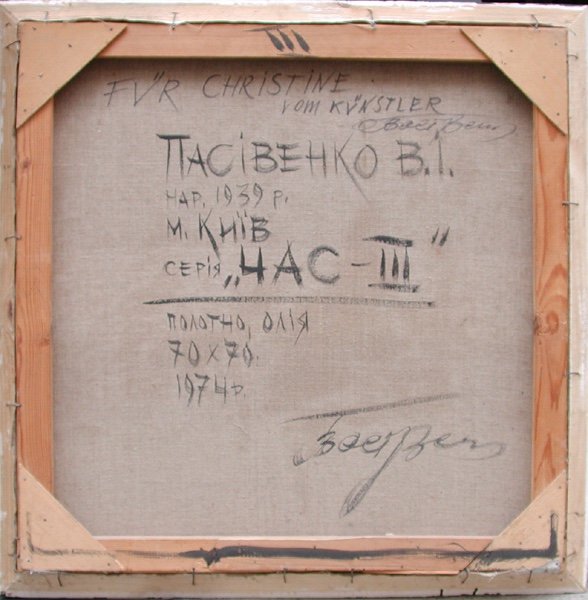 III
FÜR CHRISTINE
vom KÜNSTLER
ПАСІВЕНКО В.І.
НАР. 1939 р.
м. КИЇВ
СЕРІЯ „ЧАС – III”
ПОЛОТНО, ОЛІЯ
70 х 70.
1974 р.